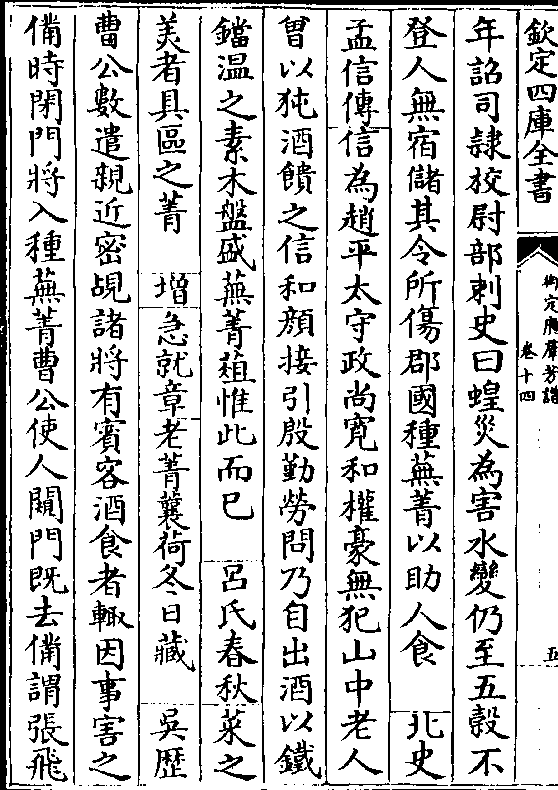 欽定四庫全書
御定廣羣芳譜
卷十四
五
年詔司隸校尉部刺史曰蝗災為害水變仍至五穀不
登人無宿儲其令所傷郡國種蕪菁以助人食　北史
孟信傳信為趙平太守政尚寛和權豪無犯山中老人
曽以㹠酒饋之信和顔接引殷勤勞問乃自出酒以鐵
鐺温之素木盤盛蕪菁葅惟此而已　吕氏春秋菜之
美者具區之菁　増急就章老菁蘘荷冬日藏　吳歴
曹公數遣親近密覘諸將有賓客酒食者輙因事害之
備時閉門將入種蕪菁曹公使人闚門既去備謂張飛